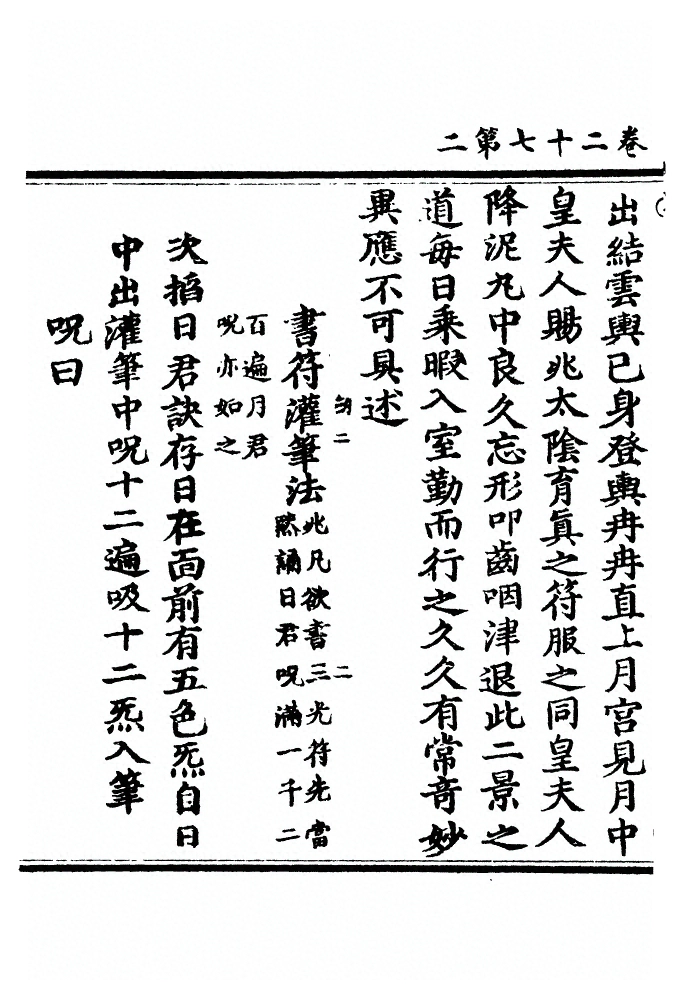 卷二十七第二
出結雲輿已身登輿冉冉直上月宮見月中
皇夫人賜兆太陰育眞之符服之同皇夫人
降泥丸中良久忘形叩齒咽津退此二景之
道每日乘暇入室勤而行之久久有常竒妙
異應不可具述
二
書符灌筆法兆凡欲書三光符先當
黙誦日君呪滿一千二
百遍月君
呪亦如之
次掐日君訣存日在面前有五色炁自日
中出灌筆中呪十二遍吸十二炁入筆
呪曰